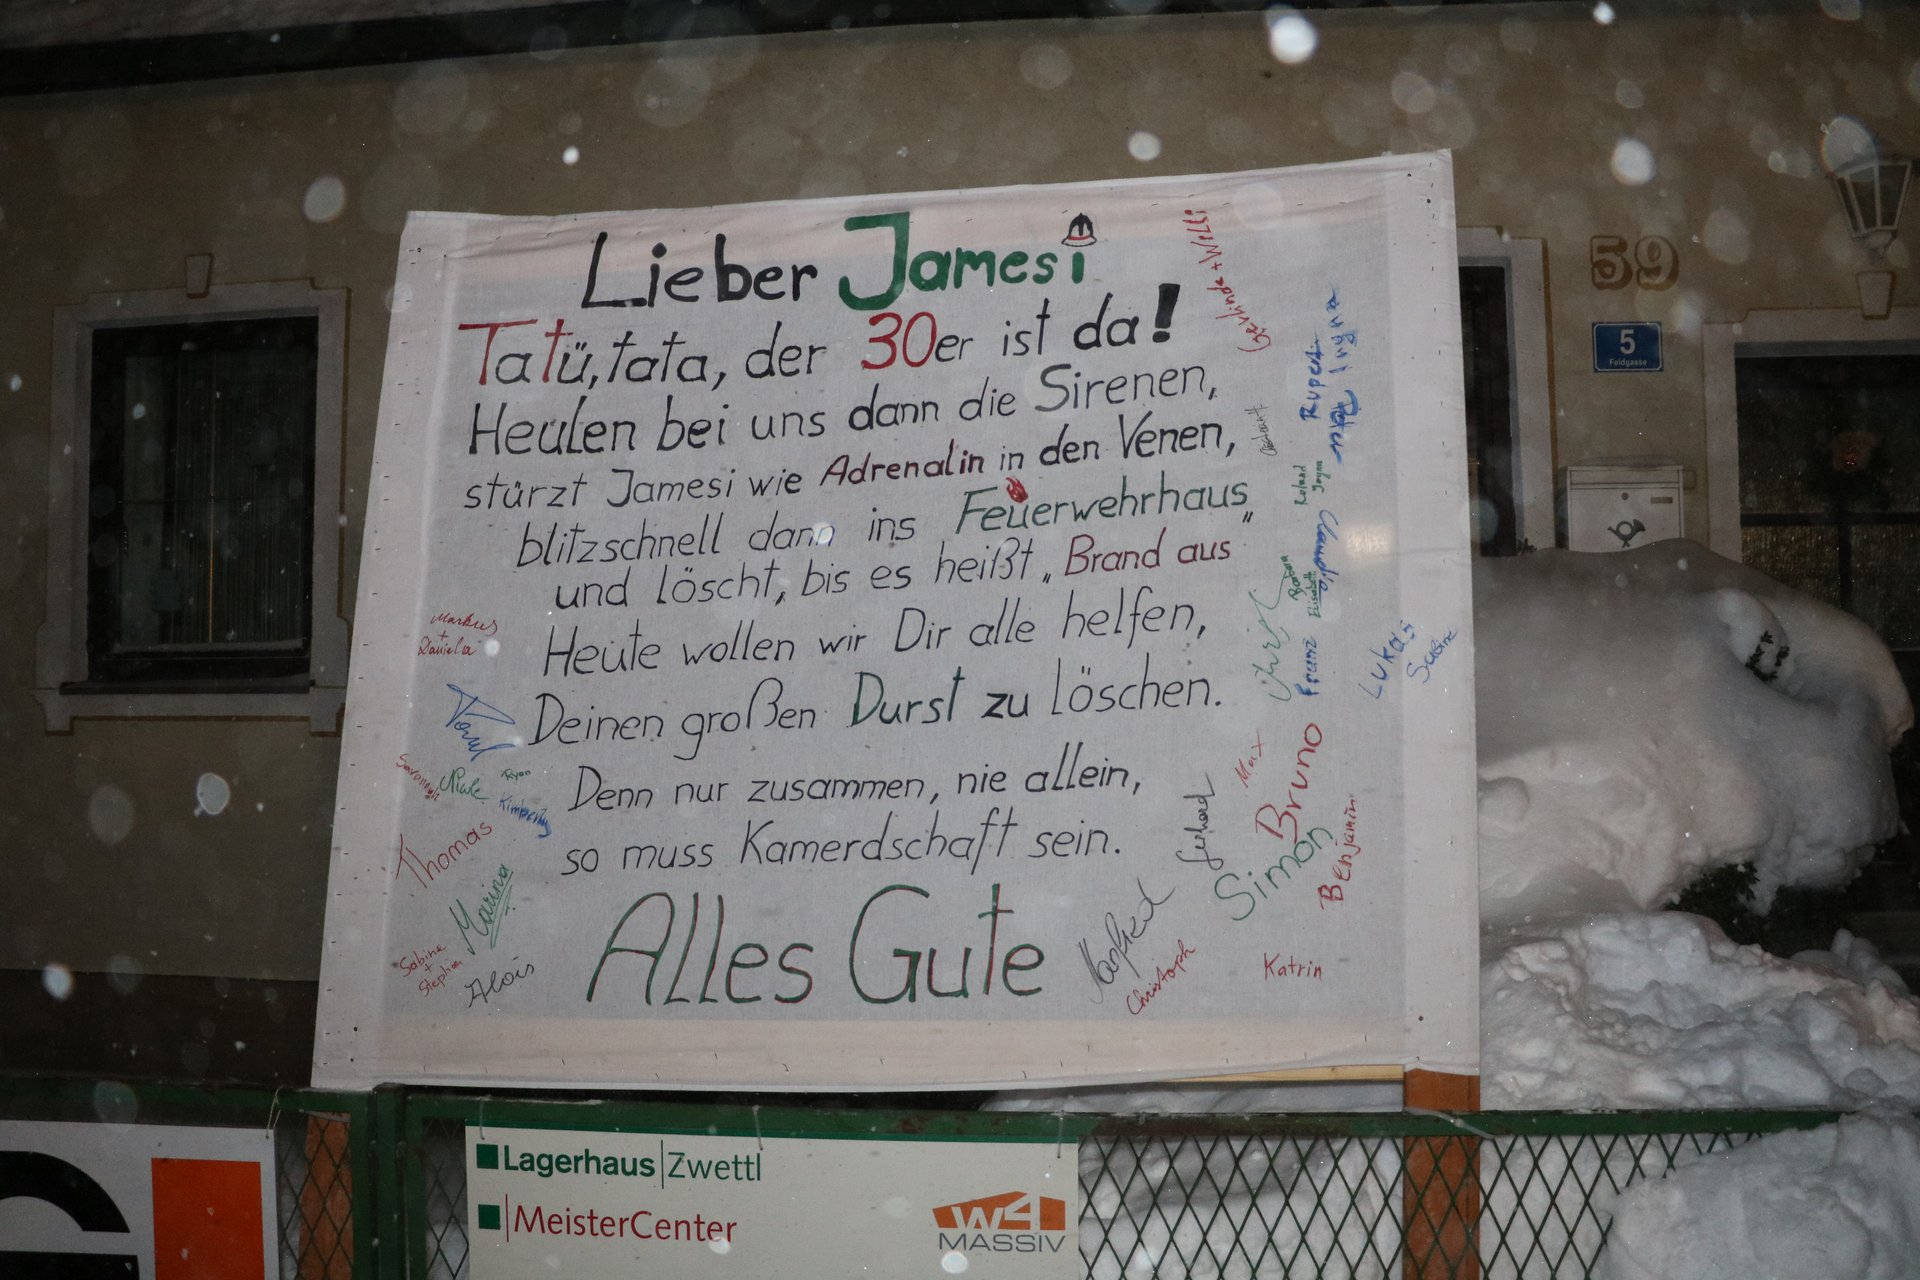 Lieber Jamesi
Tatü, tata, der 30er ist da!
Heulen bei uns dann die Sirenen,
stürzt Jamesi wie Adrenalin in den Venen,
blitzschnell dann ins Feuerwehrhaus
und löscht, bis es heißt „Brand aus"
Heute wollen wir Dir alle helfen,
Deinen großen Durst zu löschen.
Denn nur zusammen, nie allein,
so muss Kamerdschaft sein.
Alles Gute
Markus
+
Daniela
Savannah
Ryan
Kimberly
Thomas
Marina
Sabine
+
Stephan
Alois
Manfred
Christoph
Gerhard
Katrin
Simon
Bruno
Benjamin
Max
Lukas
Sabine
Franz
Christ
Barbara
Elisabeth
Claudia
Roland
Rupert
Gerlinde + Willi
59
5
Feldgasse
Lagerhaus | Zwettl
MeisterCenter
W4
MASSIV